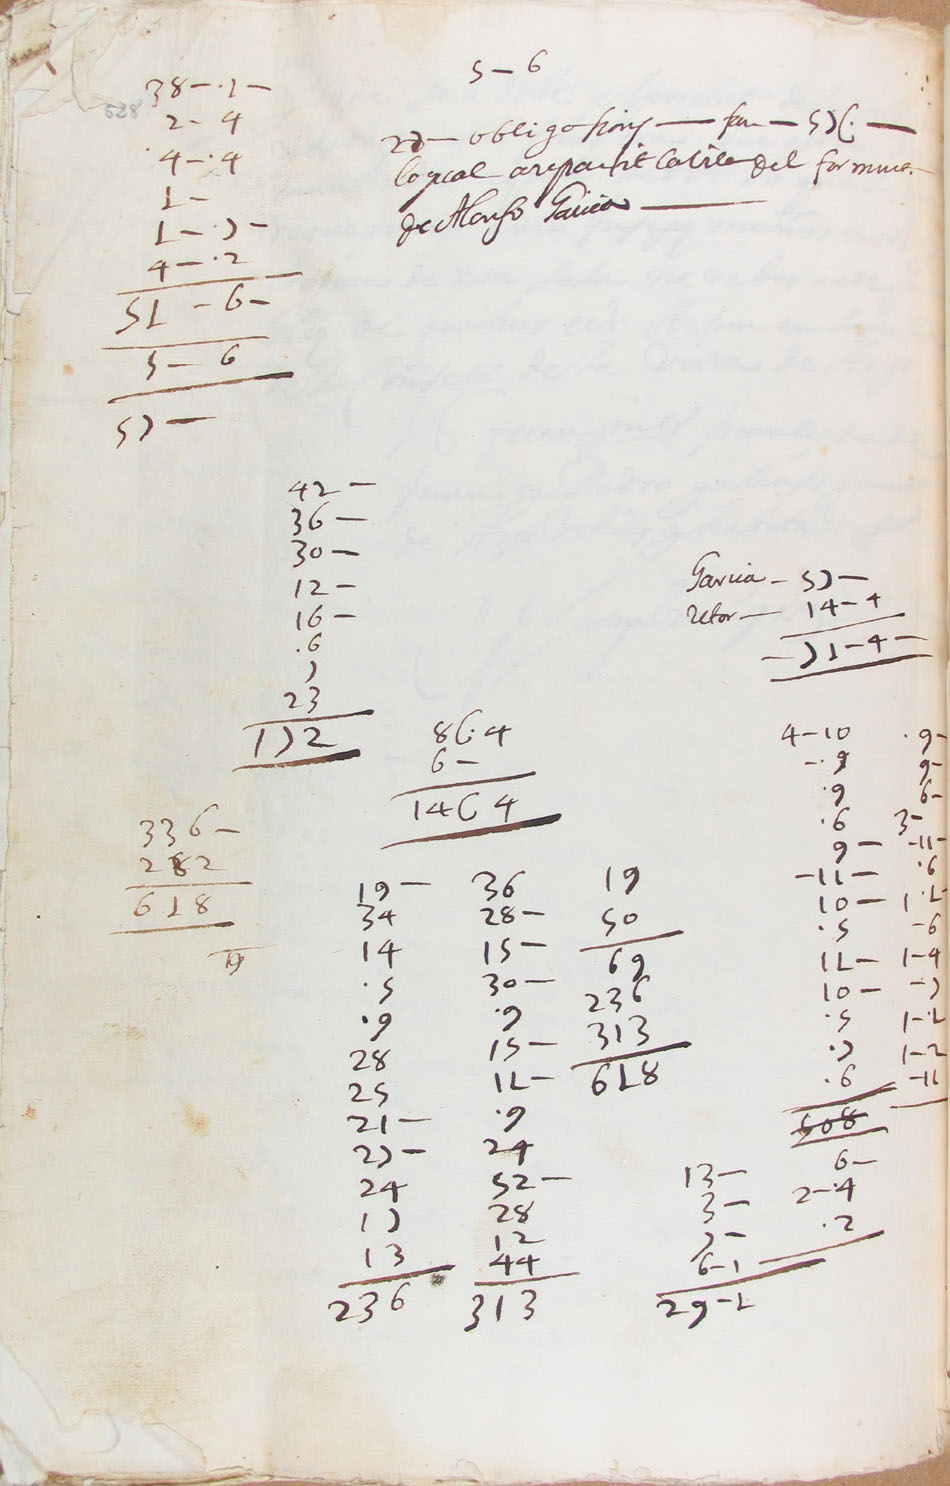 5 – 6
38 – · 1 –
2 – 4
4 – · 4
1 –
1 – · 7 –
4 – · 2
51 – 6 –
5 – 6
57 –
27 – obligasions — fan — 57 L · —
lo qual a repartit la vila del for
de Alonso Garcia —
42 –
36 –
30 –
12 –
16 –
· 6
7
23
172
Garcia – 57 –
Retor — 14 – 4
– 71 – 4 –
8 6 · 4
6 –
14 6 4
336 –
282
618
19
19 –
34
14
· 5
· 9
28
25
21 –
27 –
24
17
13
236
36
28 –
15 –
30 –
· 9
15 –
11 –
· 9
24
52 –
28
12
44
313
19
50
69
236
313
618
4 – 10
– · 9
· 9
· 6
9 –
– 11 –
10 –
· 5
11 –
10 –
· 5
· 7
· 6
508
6 –
2 – · 4
· 2
13 –
3 –
7 –
6 – 1
29 – 1
· 9 –
9 –
6 –
3 –
– 11 –
· 6
1 · 1
– 6
1 – 4
– 7
1 – · 1
1 – 2
– 11